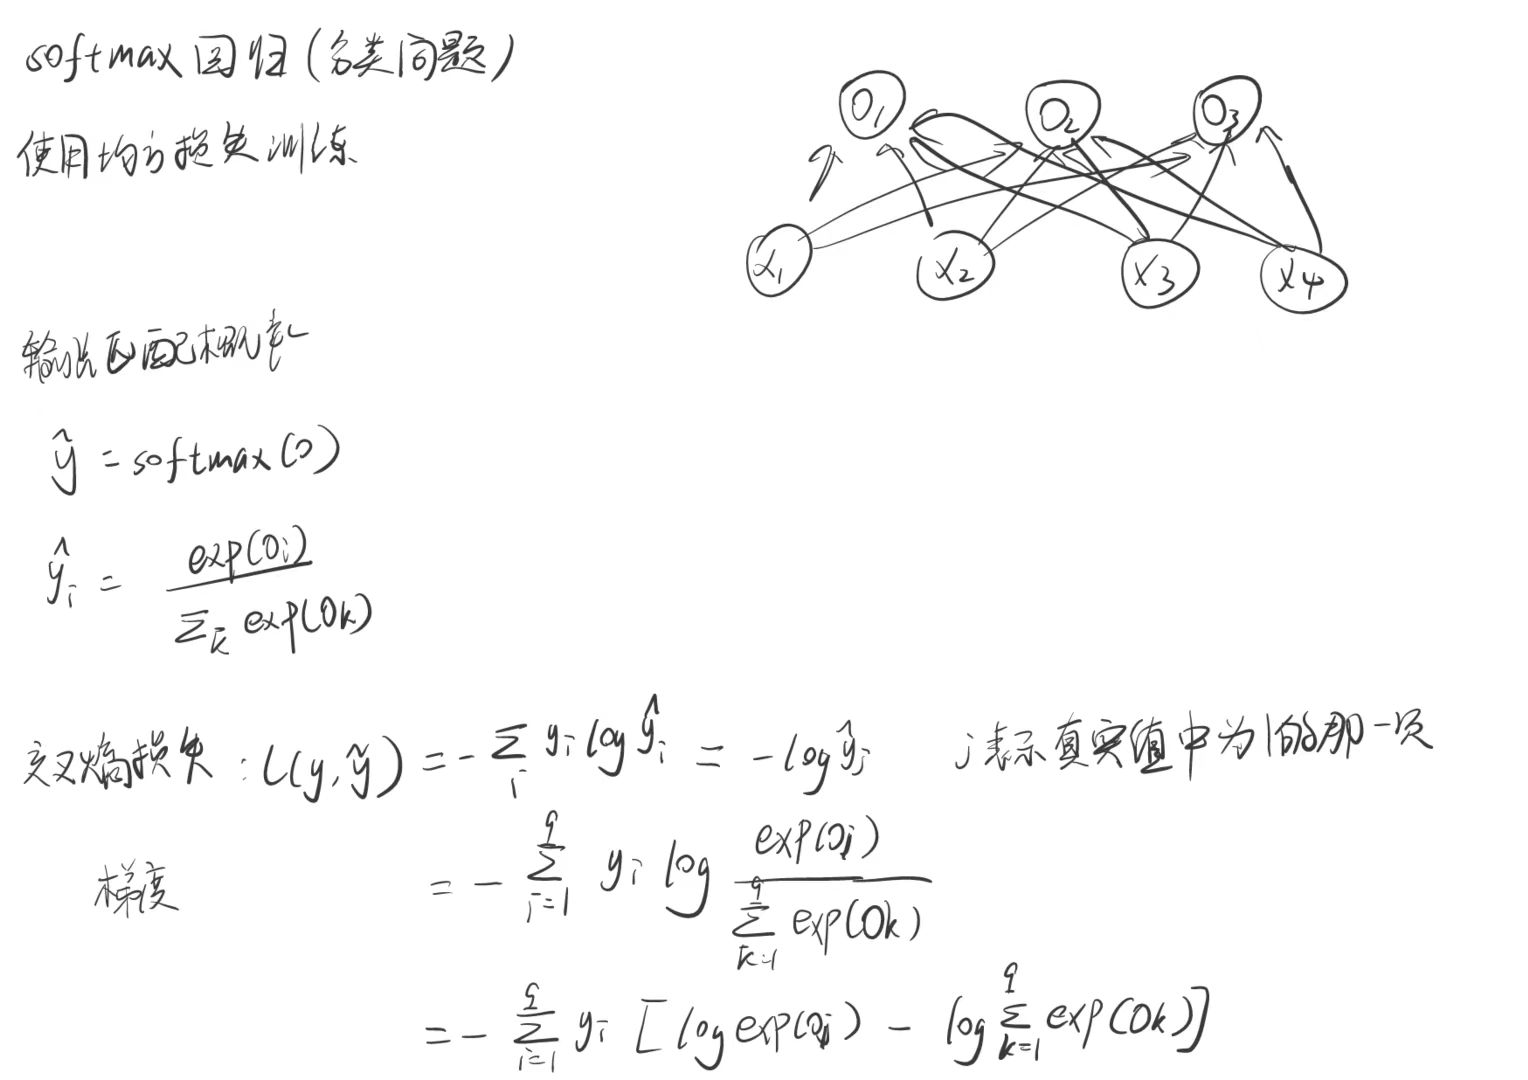 softmax 回归(分类问题)
使用均方损失训练
O1 O2 O3
x1 x2 x3 x4
输出匹配概率
ŷ = softmax(o)
ŷi = exp(Oi) / Σk exp(Ok)
交叉熵损失: L(y,ŷ) = - Σi yi log ŷi = - log ŷj j表示真实值中为1的那一项
梯度 = - Σ_{i=1}^{q} yi log exp(Oi) / Σ_{k=1}^{q} exp(Ok)
= - Σ_{i=1}^{q} yi [log exp(Oi) - log Σ_{k=1}^{q} exp(Ok)]